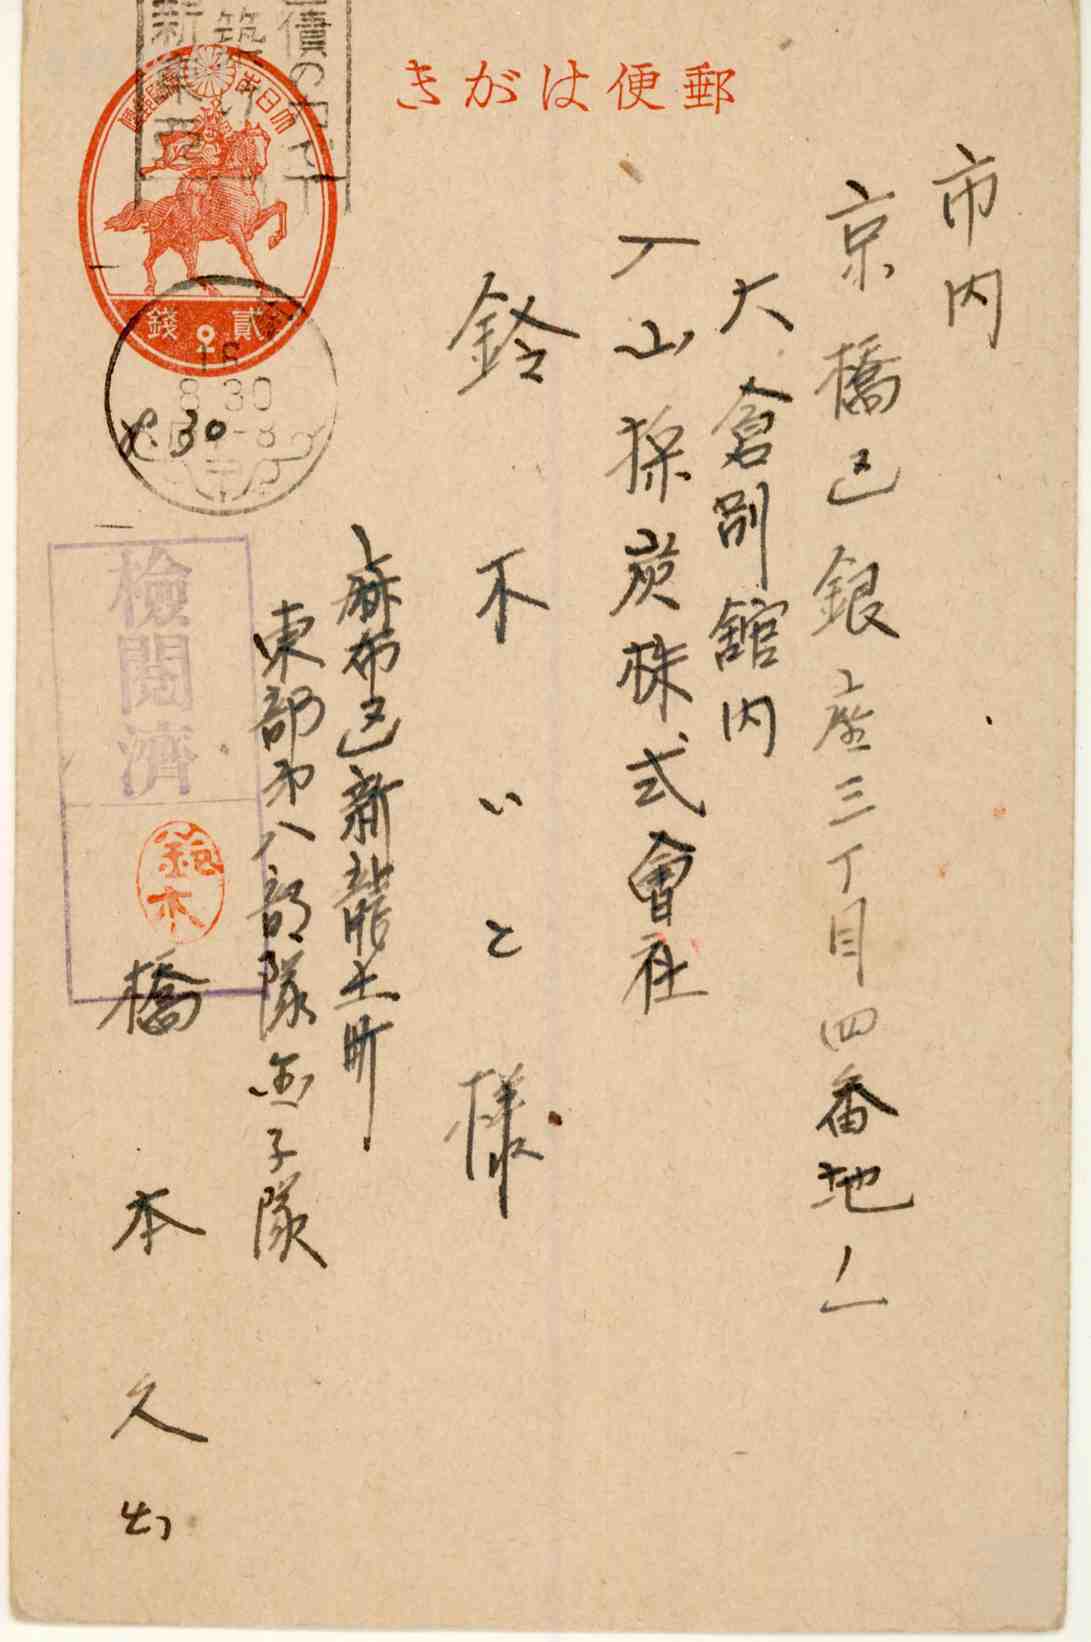 郵便はがき
市内
京橋区銀座三丁目四番地ノ一
大倉別館内
入山採炭株式會社
鈴木いと様
麻布区新龍土町
東部第八部隊金子隊
橋本久出
大日本
貳錢
債の
築け
新東亞
16
8 30
8.30
檢閲濟
鈴木